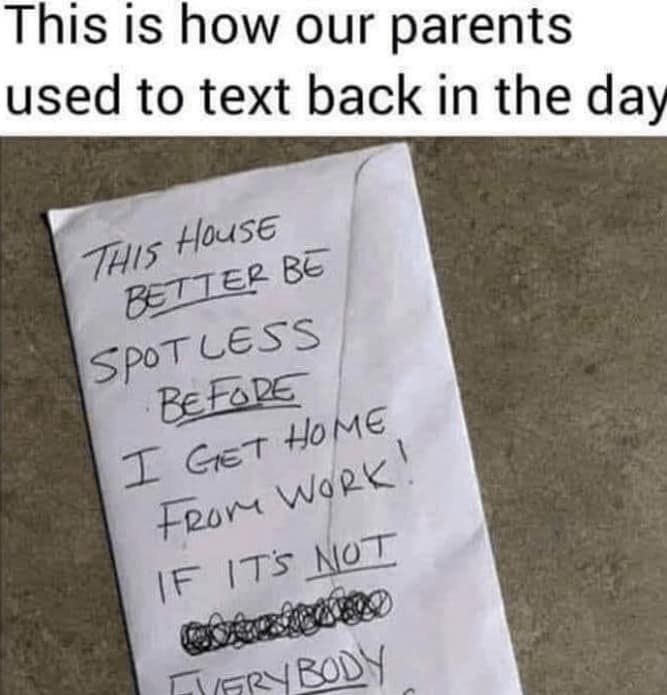 This is how our parents
used to text back in the day
THIS HOUSE
BETTER BE
SPOTLESS
BEFORE
I GET HOME
FROM WORK!
IF IT'S NOT
EVERYBODY